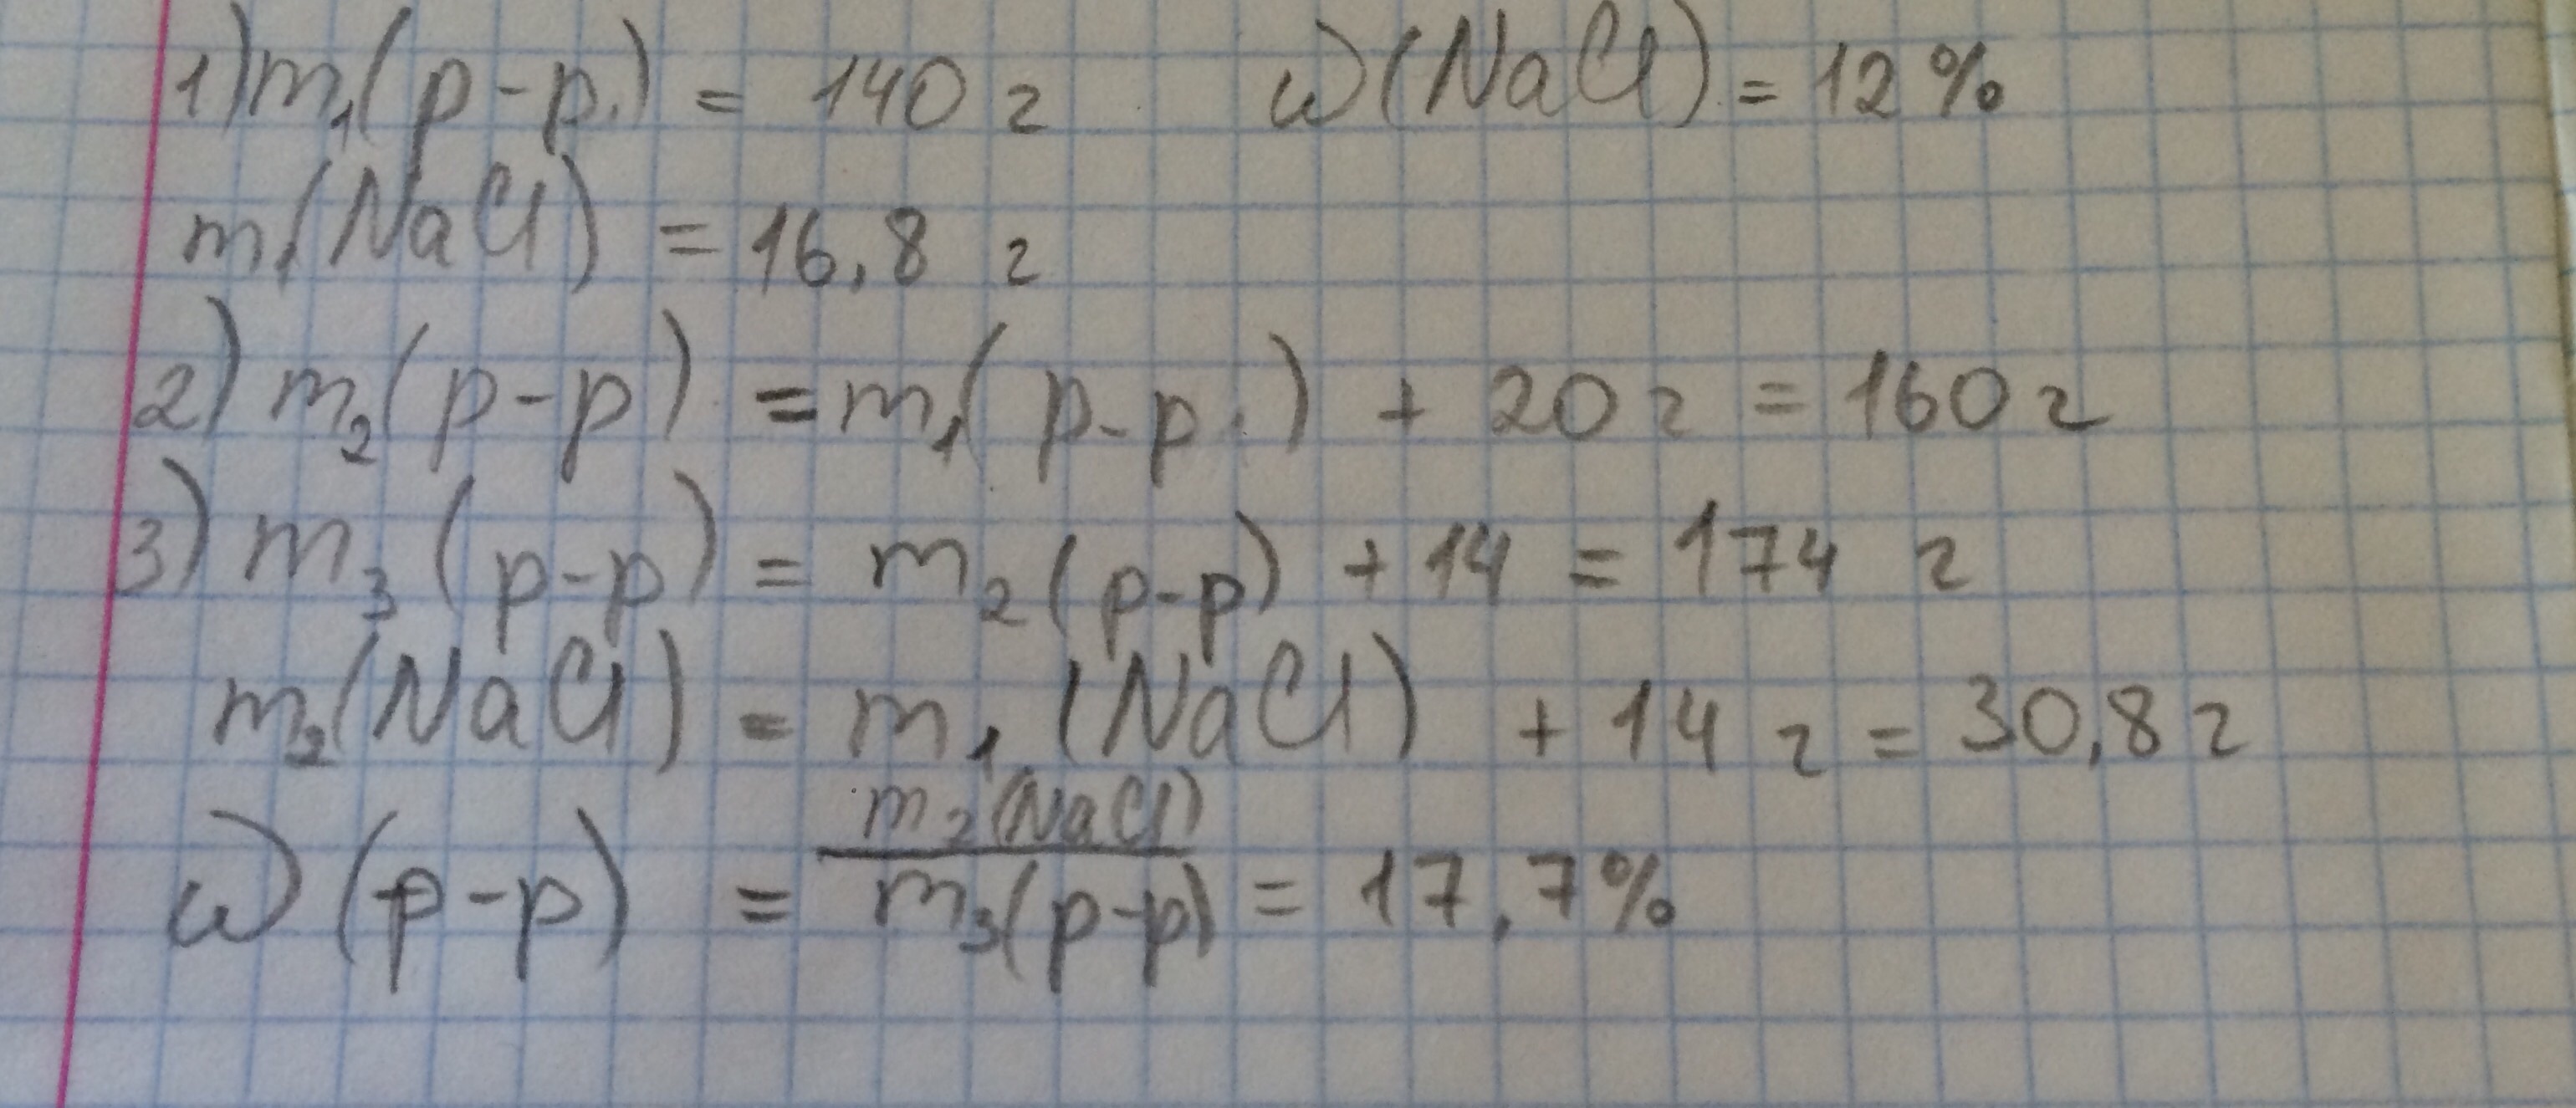 1) m₁(р-р.) = 140 г ω(NaCl) = 12%
m₁(NaCl) = 16,8 г
2) m₂(р-р) = m₁(р-р.) + 20 г = 160 г
3) m₃(р-р) = m₂(р-р) + 14 = 174 г
m₂(NaCl) = m₁(NaCl) + 14 г = 30,8 г
ω(р-р) = m₂(NaCl) / m₃(р-р) = 17,7%